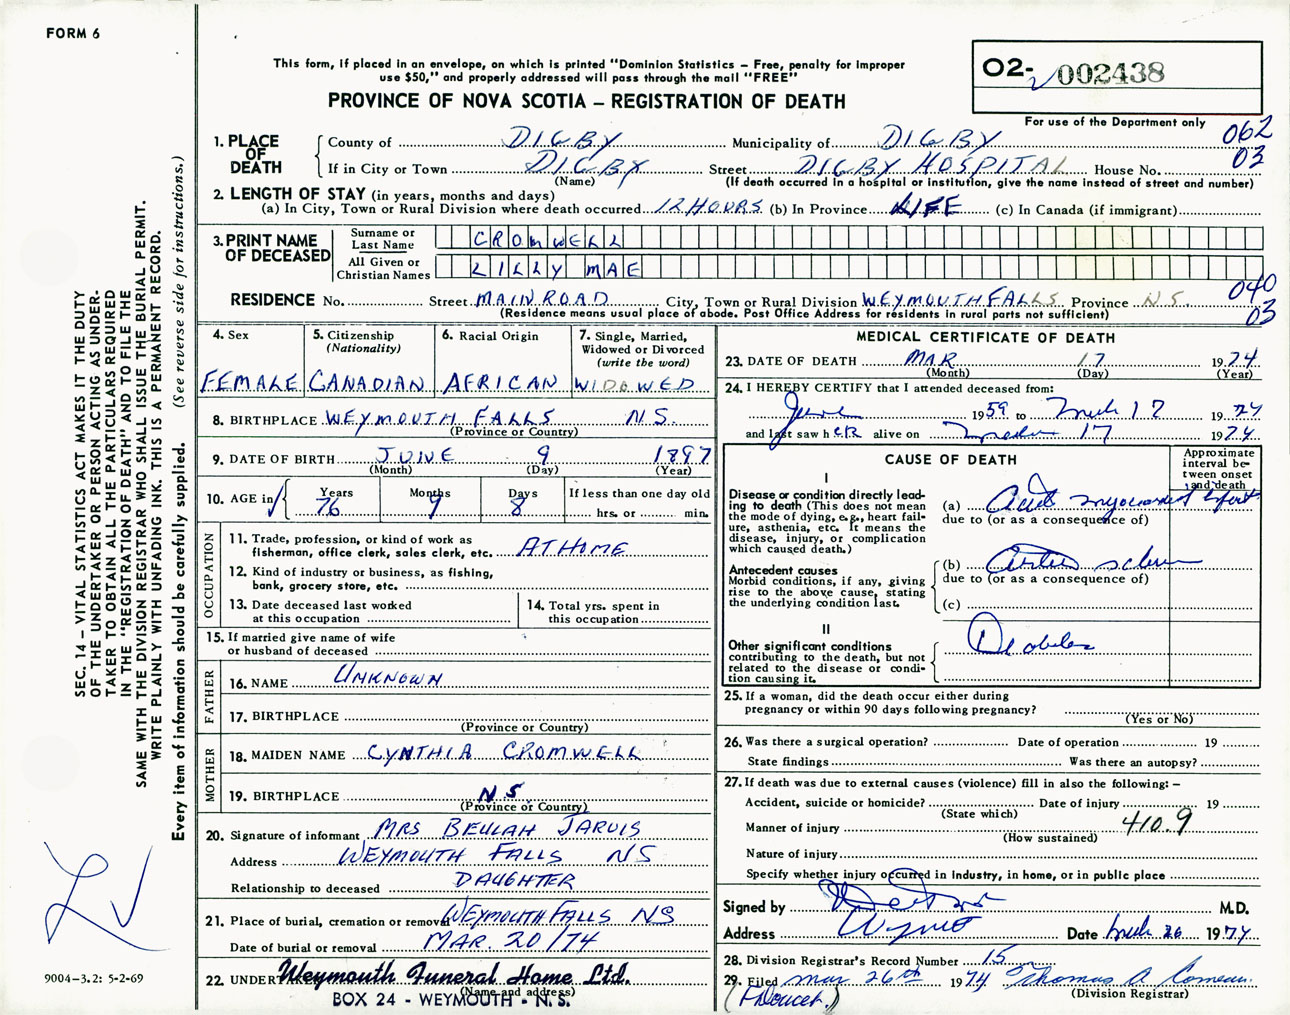 FORM 6
This form, if placed in an envelope, on which is printed "Dominion Statistics – Free, penalty for improper
use $50," and properly addressed will pass through the mail "FREE"
PROVINCE OF NOVA SCOTIA – REGISTRATION OF DEATH
02- 002438
For use of the Department only
062
03
1. PLACE OF DEATH
County of DIGBY Municipality of DIGBY
If in City or Town DIGBY Street DIGBY HOSPITAL House No.
(Name) (If death occurred in a hospital or institution, give the name instead of street and number)
2. LENGTH OF STAY (in years, months and days)
(a) In City, Town or Rural Division where death occurred 12 HOURS (b) In Province LIFE (c) In Canada (if immigrant)
3. PRINT NAME OF DECEASED
Surname or Last Name CROMWELL
All Given or Christian Names LILLY MAE
040
03
RESIDENCE No. Street MAIN ROAD City, Town or Rural Division WEYMOUTH FALLS Province N.S.
(Residence means usual place of abode. Post Office Address for residents in rural parts not sufficient)
4. Sex
FEMALE
5. Citizenship
(Nationality)
CANADIAN
6. Racial Origin
AFRICAN
7. Single, Married,
Widowed or Divorced
(write the word)
WIDOWED
8. BIRTHPLACE WEYMOUTH FALLS N.S.
(Province or Country)
9. DATE OF BIRTH JUNE 9 1897
(Month) (Day) (Year)
10. AGE in
Years Months Days If less than one day old
76 9 8 hrs. or min.
OCCUPATION
11. Trade, profession, or kind of work as
fisherman, office clerk, sales clerk, etc. AT HOME
12. Kind of industry or business, as fishing,
bank, grocery store, etc.
13. Date deceased last worked
at this occupation
14. Total yrs. spent in
this occupation
15. If married give name of wife
or husband of deceased
FATHER
16. NAME UNKNOWN
17. BIRTHPLACE
(Province or Country)
MOTHER
18. MAIDEN NAME CYNTHIA CROMWELL
19. BIRTHPLACE N.S.
(Province or Country)
20. Signature of informant MRS BEULAH JARVIS
Address WEYMOUTH FALLS NS
Relationship to deceased DAUGHTER
21. Place of burial, cremation or removal WEYMOUTH FALLS NS
Date of burial or removal MAR. 20/74
22. UNDERTAKER Weymouth Funeral Home Ltd.
(Name and address)
BOX 24 - WEYMOUTH - N.S.
MEDICAL CERTIFICATE OF DEATH
23. DATE OF DEATH MAR 17 1974
(Month) (Day) (Year)
24. I HEREBY CERTIFY that I attended deceased from:
June 1959 to March 17 1974
and last saw her alive on March 17 1974
CAUSE OF DEATH
Approximate
interval be-
tween onset
and death
I
Disease or condition directly lead-
ing to death (This does not mean
the mode of dying, e.g., heart fail-
ure, asthenia, etc. It means the
disease, injury, or complication
which caused death.)
(a) Acute myocardial infarct
due to (or as a consequence of)
Antecedent causes
Morbid conditions, if any, giving
rise to the above cause, stating
the underlying condition last.
(b) Arterio scler
due to (or as a consequence of)
(c)
II
Other significant conditions
contributing to the death, but not
related to the disease or condi-
tion causing it.
Diabetes
25. If a woman, did the death occur either during
pregnancy or within 90 days following pregnancy?
(Yes or No)
26. Was there a surgical operation? Date of operation 19
State findings Was there an autopsy?
27. If death was due to external causes (violence) fill in also the following: –
Accident, suicide or homicide? Date of injury 19
(State which)
Manner of injury 410.9
(How sustained)
Nature of injury
Specify whether injury occurred in industry, in home, or in public place
Signed by M.D.
Address Weymouth Date March 26 1974
28. Division Registrar's Record Number 15
29. Filed Mar 26th 1974 Thomas A Comeau
(Division Registrar)
(F. Doucet.)
SEC. 14 – VITAL STATISTICS ACT MAKES IT THE DUTY
OF THE UNDERTAKER OR PERSON ACTING AS UNDER-
TAKER TO OBTAIN ALL THE PARTICULARS REQUIRED
IN THE "REGISTRATION OF DEATH" AND TO FILE THE
SAME WITH THE DIVISION REGISTRAR WHO SHALL ISSUE THE BURIAL PERMIT.
WRITE PLAINLY WITH UNFADING INK. THIS IS A PERMANENT RECORD.
Every item of information should be carefully supplied. (See reverse side for instructions.)
9004–3.2: 5-2-69